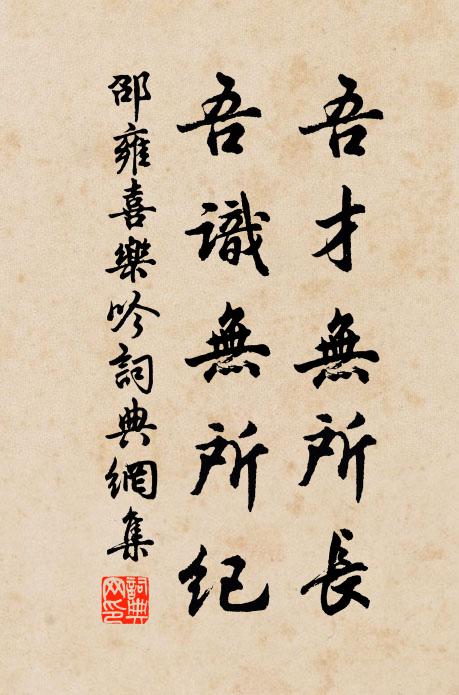 吾才無所長
吾識無所紀
邵雍喜樂吟詞典網集
詞典網印